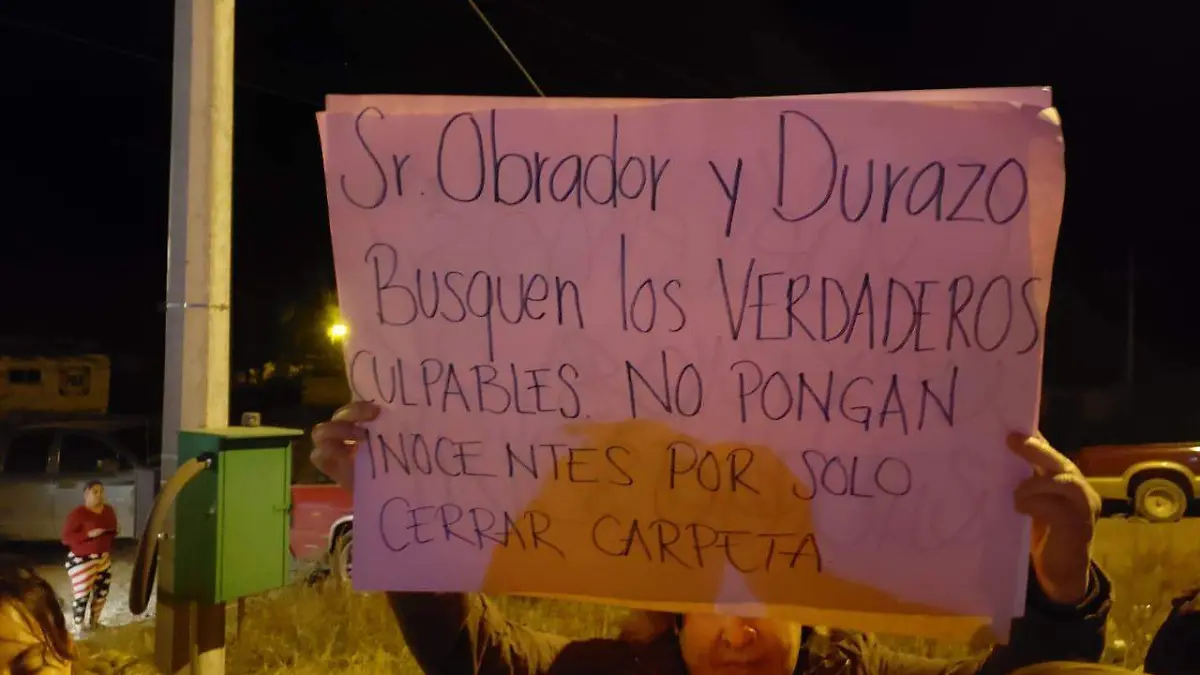 Sr. Obrador y Durazo
Busquen los VERDADEROS
CULPABLES. NO PONGAN
INOCENTES POR SOLO
CERRAR CARPETA